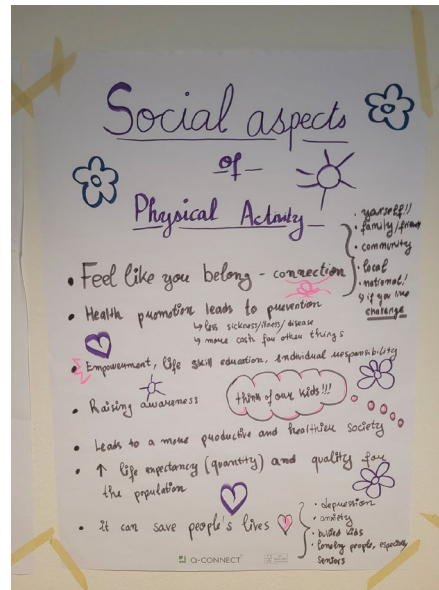 Social aspects
of
Physical Activity
• Feel like you belong - connection
• yourself!!
• family/friends
• community
• local
• national!
↳ if you like
challenge
• Health promotion leads to prevention
↳ less sickness/illness/disease
↳ more cash for other things
• Empowerment, life skill education, individual responsibility
• Raising awareness
think of our kids!!!
• Leads to a more productive and healthier society
• ↑ life expectancy (quantity) and quality for
the population
• It can save people's lives
• depression
• anxiety
• bullied kids
• lonely people, especially
seniors
Q-CONNECT